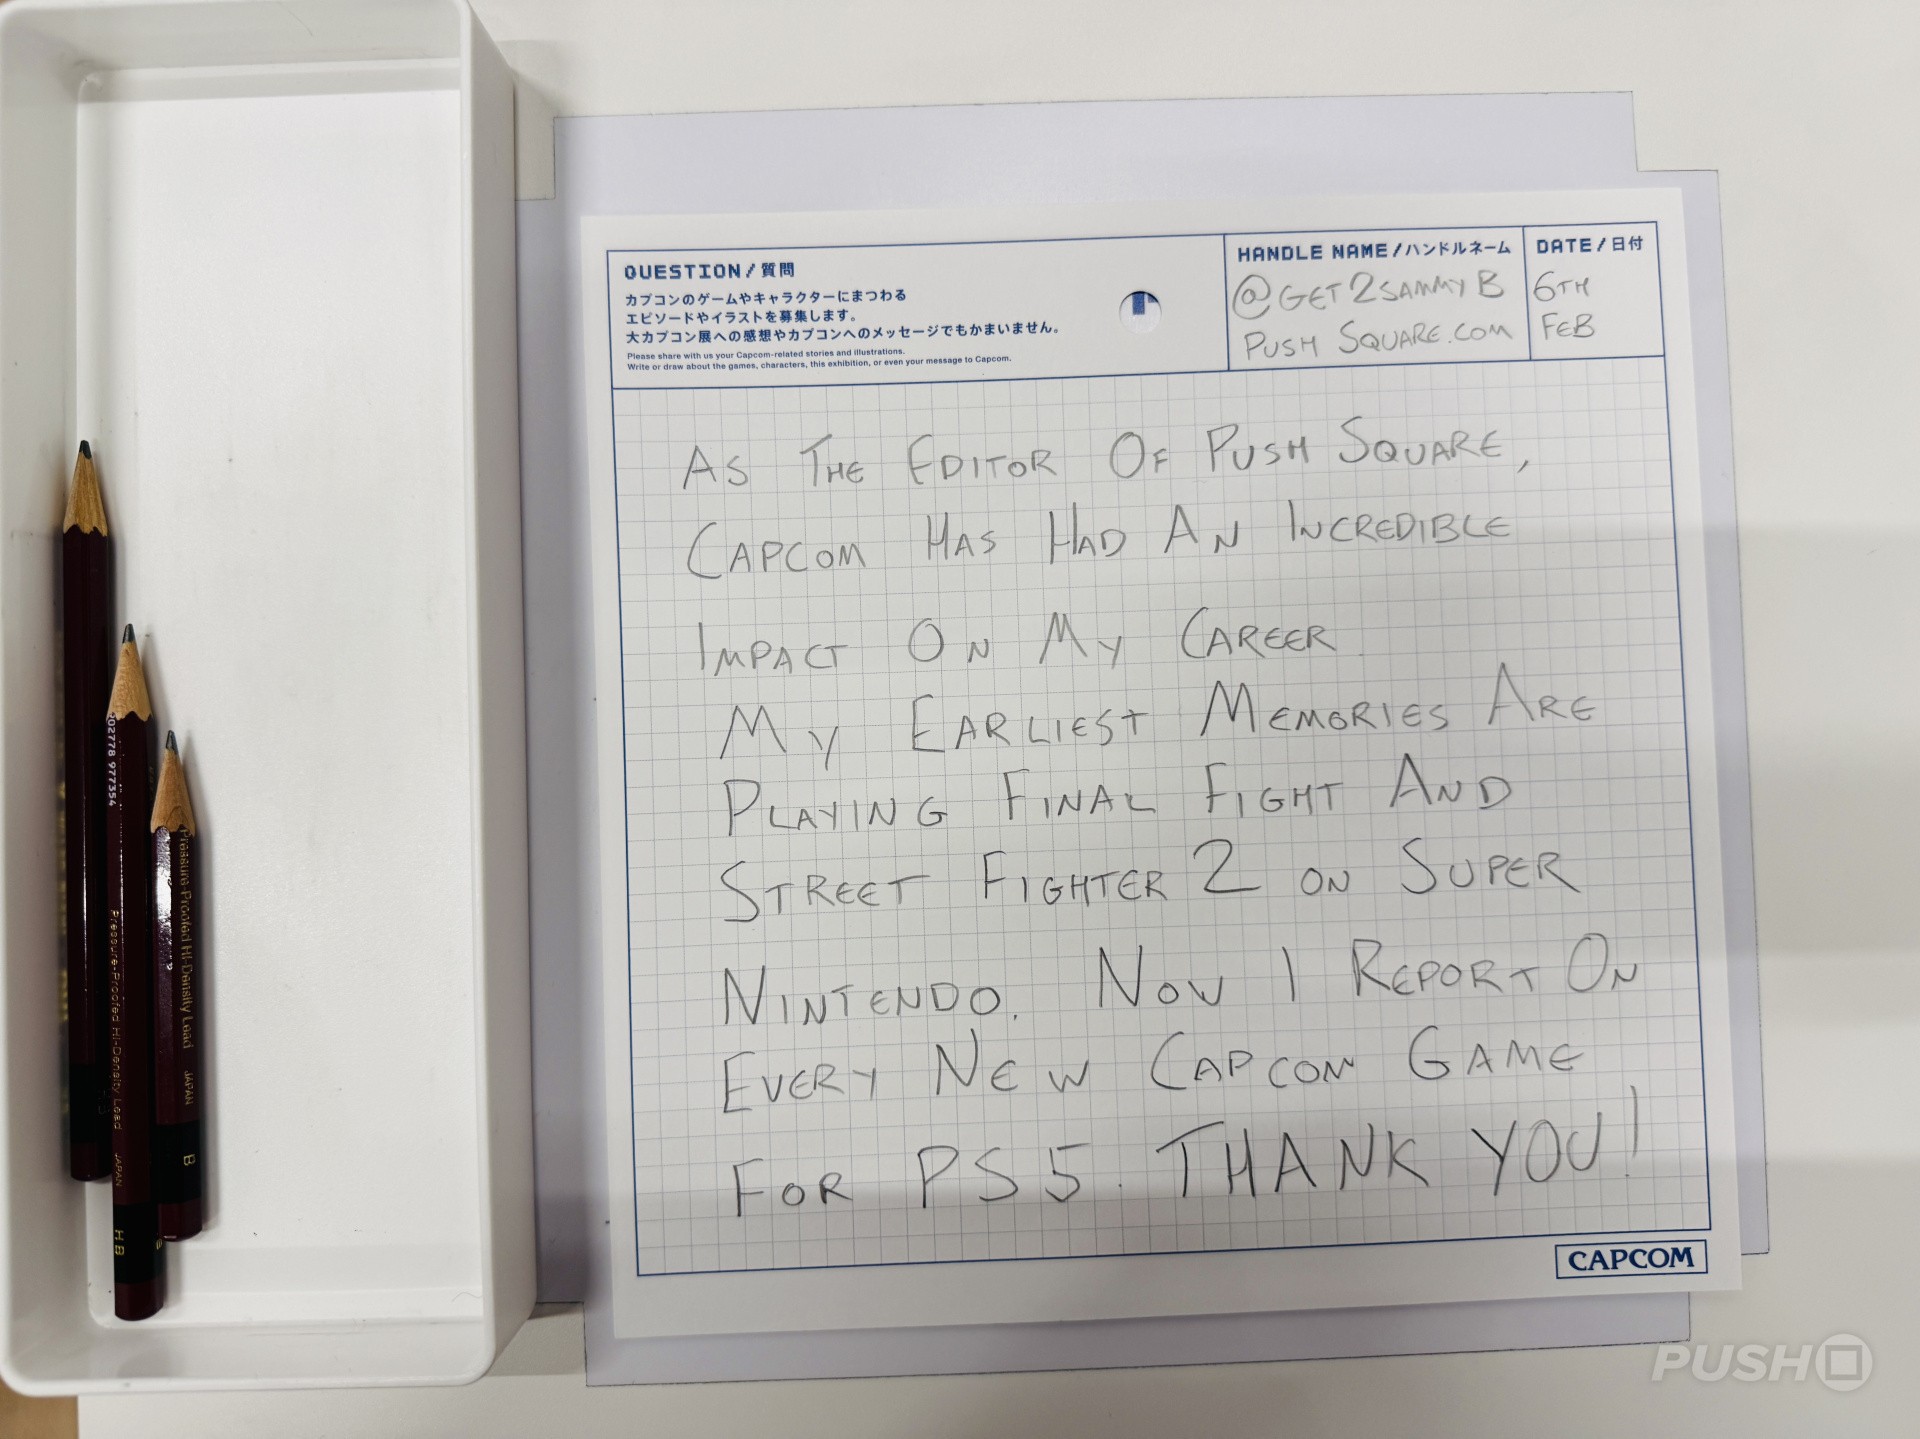 QUESTION/質問
カプコンのゲームやキャラクターにまつわる
エピソードやイラストを募集します。
大カプコン展への感想やカプコンへのメッセージでもかまいません。
Please share with us your Capcom-related stories and illustrations.
Write or draw about the games, characters, this exhibition, or even your message to Capcom.
HANDLE NAME/ハンドルネーム
@GET2SAMMYB
PUSH SQUARE.COM
DATE/日付
6TH
FEB
AS THE EDITOR OF PUSH SQUARE,
CAPCOM HAS HAD AN INCREDIBLE
IMPACT ON MY CAREER
MY EARLIEST MEMORIES ARE
PLAYING FINAL FIGHT AND
STREET FIGHTER 2 ON SUPER
NINTENDO. NOW I REPORT ON
EVERY NEW CAPCOM GAME
FOR PS5. THANK YOU!
CAPCOM
202778 977354
Pressure-Proofed Hi-Density Lead JAPAN HB
Pressure-Proofed Hi-Density Lead JAPAN B
PUSH